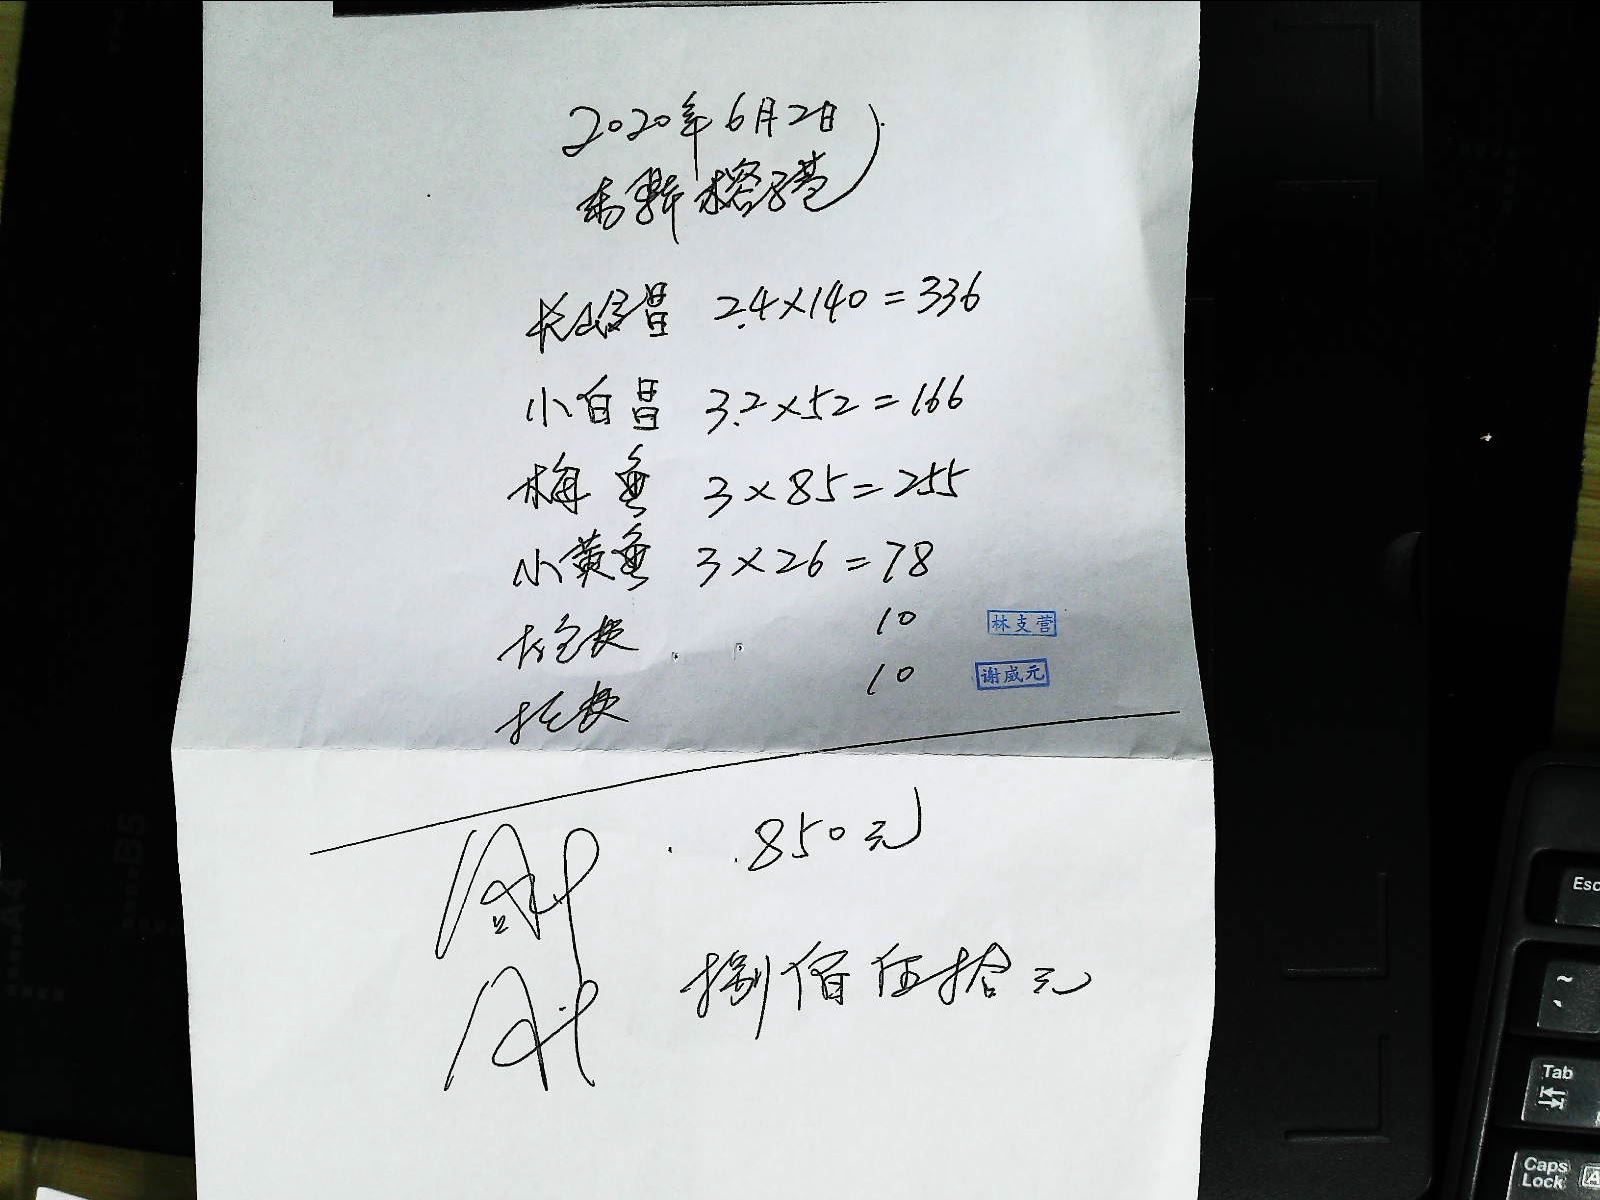 2020年6月2日
长山昌 2.4×140=336
小白昌 3.2×52=166
梅鱼 3×85=255
小黄鱼 3×26=78
10 林支营
10 谢威元
合计 850元
合计 捌佰伍拾元
B5
A4
Esc
~
Tab
Caps Lock
A